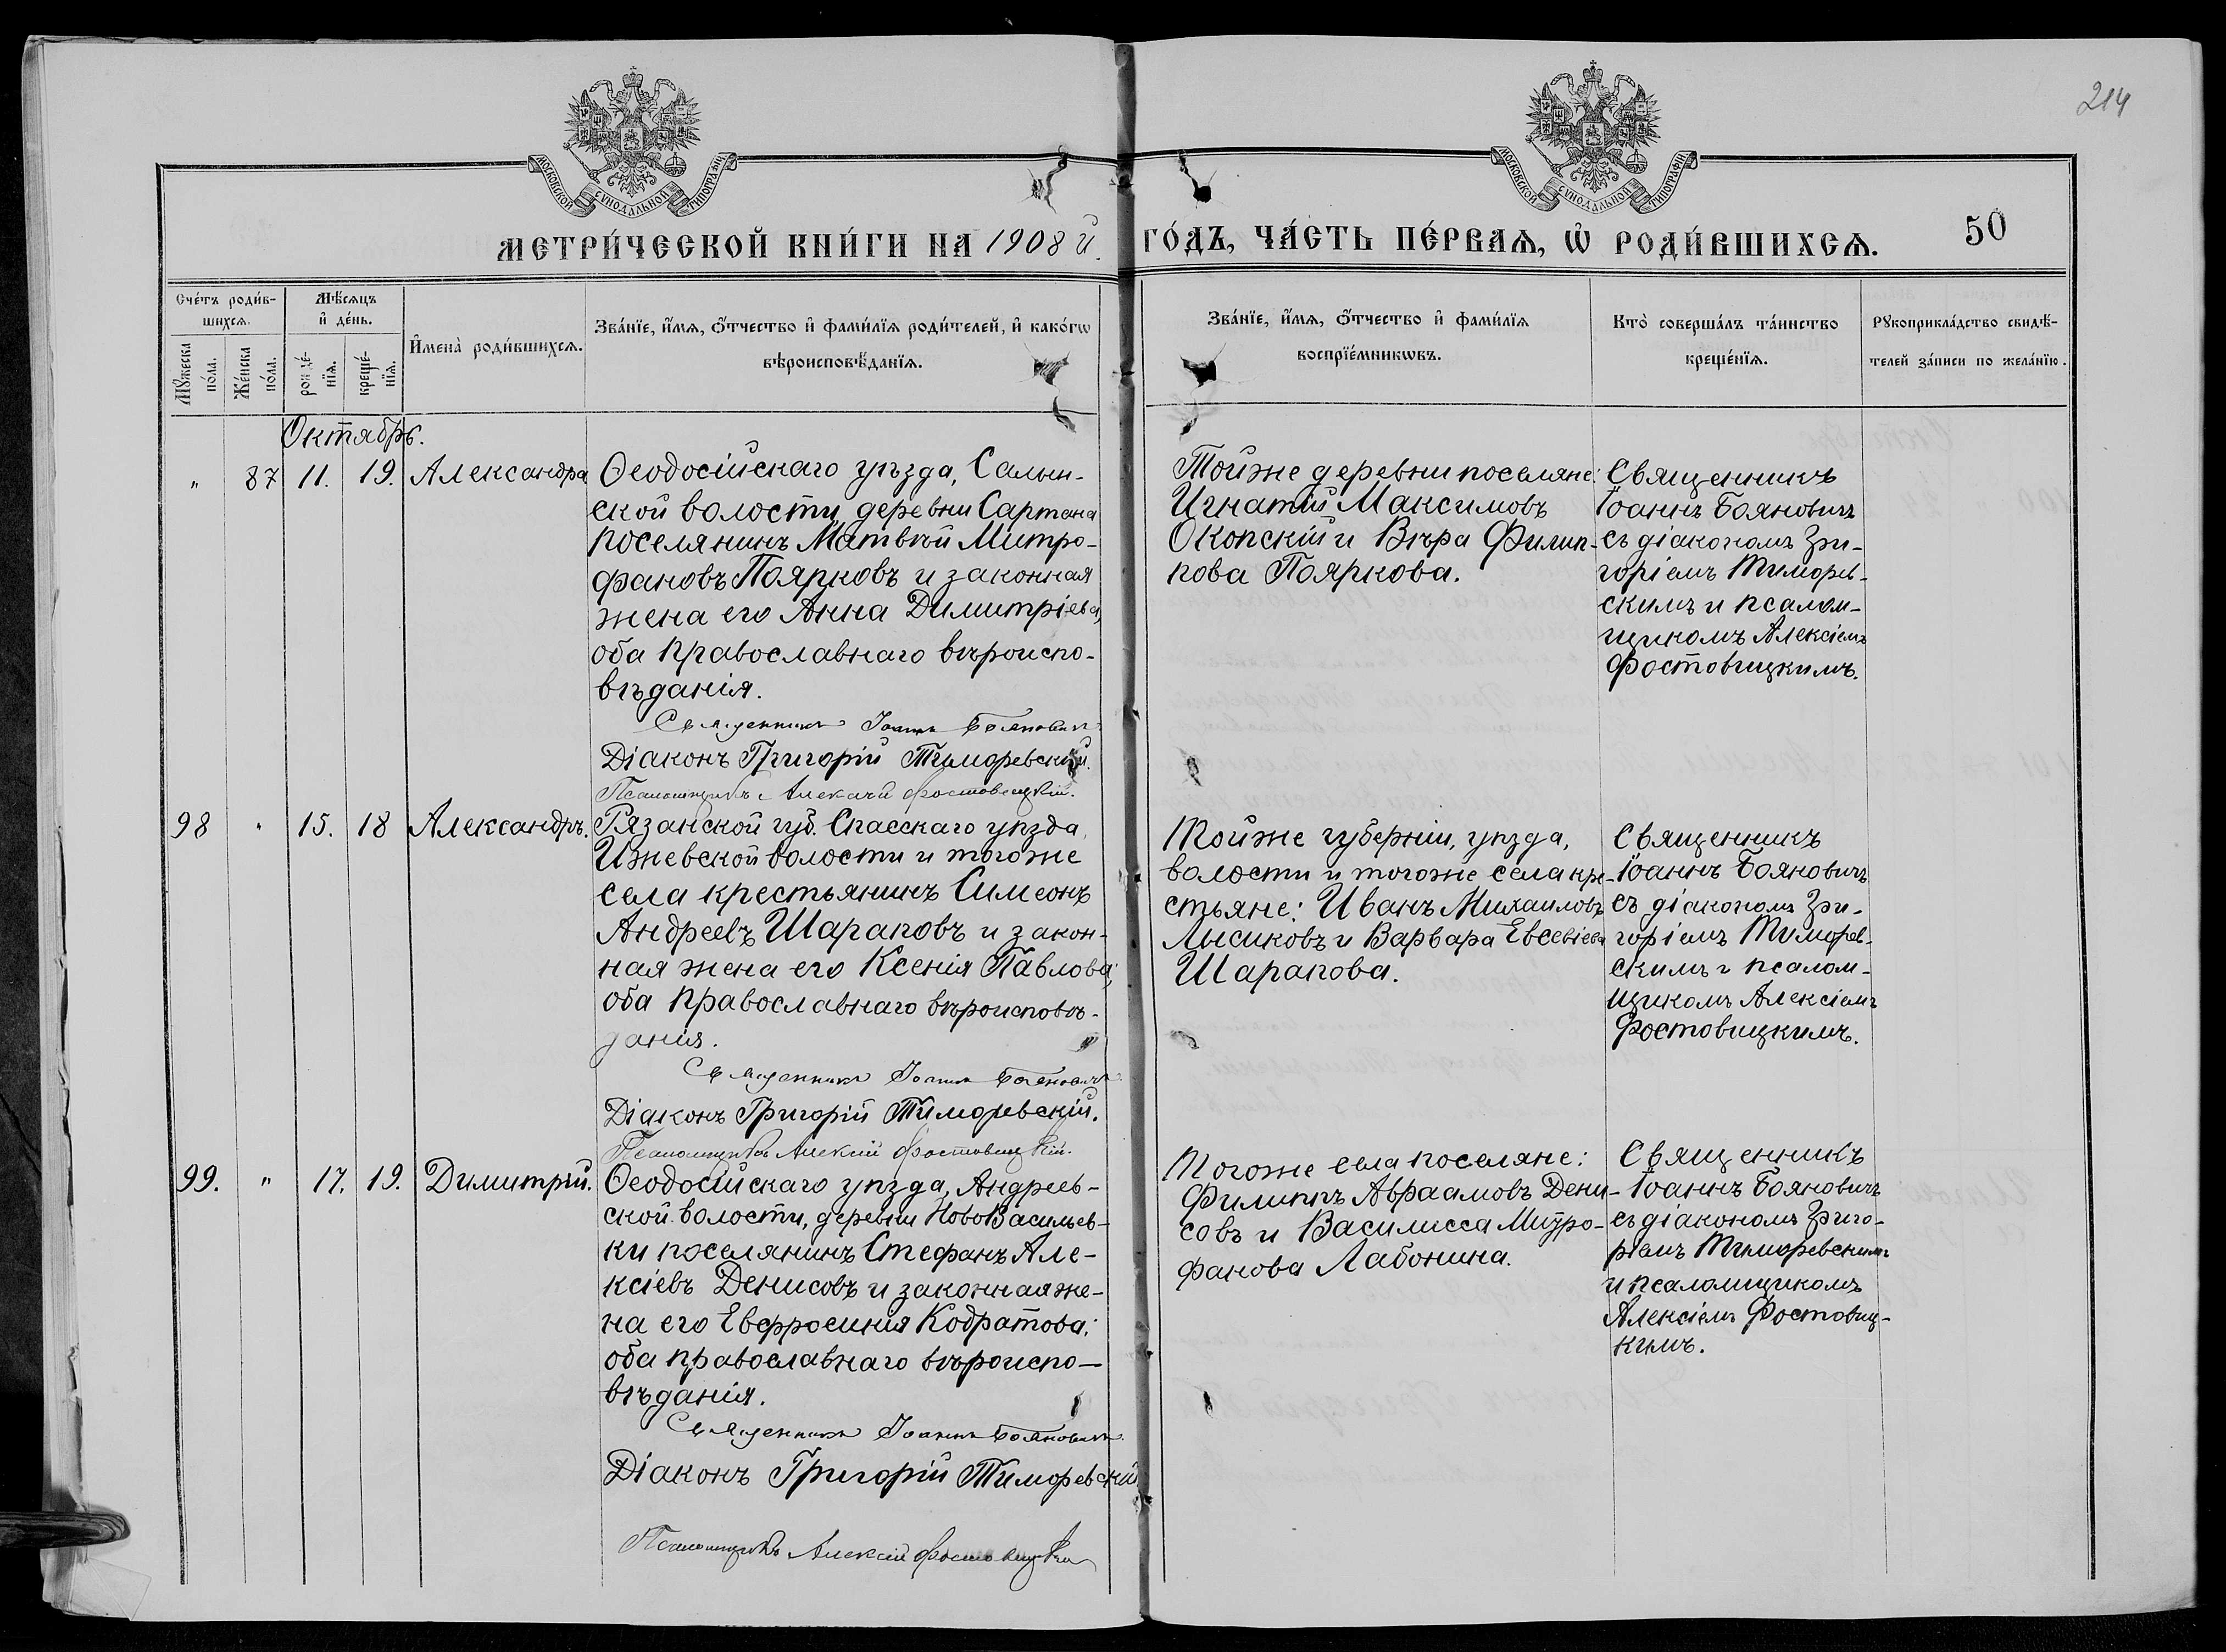 214
МОСКОВСКОЙ СѴНОДАЛЬНОЙ ТИПОГРАФІИ
МОСКОВСКОЙ СѴНОДАЛЬНОЙ ТИПОГРАФІИ
МЕТРИ́ЧЕСКОЙ КНИ́ГИ НА 1908 й. ГО́ДЪ, ЧА́СТЬ ПЕ́РВАѦ, Ѿ РОДИ́ВШИХСѦ. 50
Сче́тъ роди́в-
шихсѧ.
Мꙋ́жеска по́ла.
Же́нска по́ла.
Мѣ́сѧцъ
и҆ де́нь.
рожде́-
нїѧ.
креще́-
нїѧ.
И҆мена̀ роди́вшихсѧ.
Зва́нїе, и҆́мѧ, ѻ҆́тчество и҆ фами́лїѧ роди́телей, и҆ како́гѡ
вѣроисповѣ́данїѧ.
Зва́нїе, и҆́мѧ, ѻ҆́тчество и҆ фами́лїѧ
воспрїе́мникѡвъ.
Кто̀ соверша́лъ та́инство
креще́нїѧ.
Рꙋкоприкла́дство свидѣ́-
телей за́писи по жела́нїю.
Октябрь.
" 87 11. 19. Александра
Ѳеодосійскаго уѣзда, Салын-
ской волости, деревни Сартана
поселянинъ Матвѣй Митро-
фановъ Поярковъ и законная
жена его Анна Димитріева,
оба православнаго вѣроиспо-
вѣданія.
Священникъ Іоаннъ Бояновичъ
Діаконъ Григорій Тиморевскій.
Псаломщикъ Алексій Фостовицкій.
Тойже деревни поселяне:
Игнатій Максимовъ
Окопскій и Вѣра Филип-
пова Пояркова.
Священникъ
Іоаннъ Бояновичъ
съ діакономъ Гри-
горіемъ Тиморев-
скимъ и псалом-
щикомъ Алексіемъ
Фостовицкимъ.
98 " 15. 18 Александръ.
Рязанской губ. Спасскаго уѣзда,
Ижевской волости и тогоже
села крестьянинъ Симеонъ
Андреевъ Шараповъ и закон-
ная жена его Ксенія Павлова;
оба православнаго вѣроисповѣ-
данія.
Священникъ Іоаннъ Бояновичъ
Діаконъ Григорій Тиморевскій.
Псаломщикъ Алексій Фостовицкій.
Тойже губерніи, уѣзда,
волости и тогоже села кре-
стьяне: Иванъ Михаиловъ
Лысиковъ и Варвара Евсевіева
Шарапова.
Священникъ
Іоаннъ Бояновичъ
съ діакономъ Гри-
горіемъ Тиморев-
скимъ и псалом-
щикомъ Алексіемъ
Фостовицкимъ.
99. " 17. 19. Димитрій.
Ѳеодосійскаго уѣзда, Андреев-
ской волости, деревни НовоВасильев-
ки поселянинъ Стефанъ Але-
ксіевъ Денисовъ и законная же-
на его Евфросинія Кодратова;
оба православнаго вѣроиспо-
вѣданія.
Священникъ Іоаннъ Бояновичъ
Діаконъ Григорій Тиморевскій.
Псаломщикъ Алексій Фостовицкій
Тогоже села поселяне:
Филиппъ Авраамовъ Дени-
совъ и Василисса Митро-
фанова Лабонина.
Священникъ
Іоаннъ Бояновичъ
съ діакономъ Григо-
ріемъ Тиморевскимъ
и псаломщикомъ
Алексіемъ Фостовиц-
кимъ.